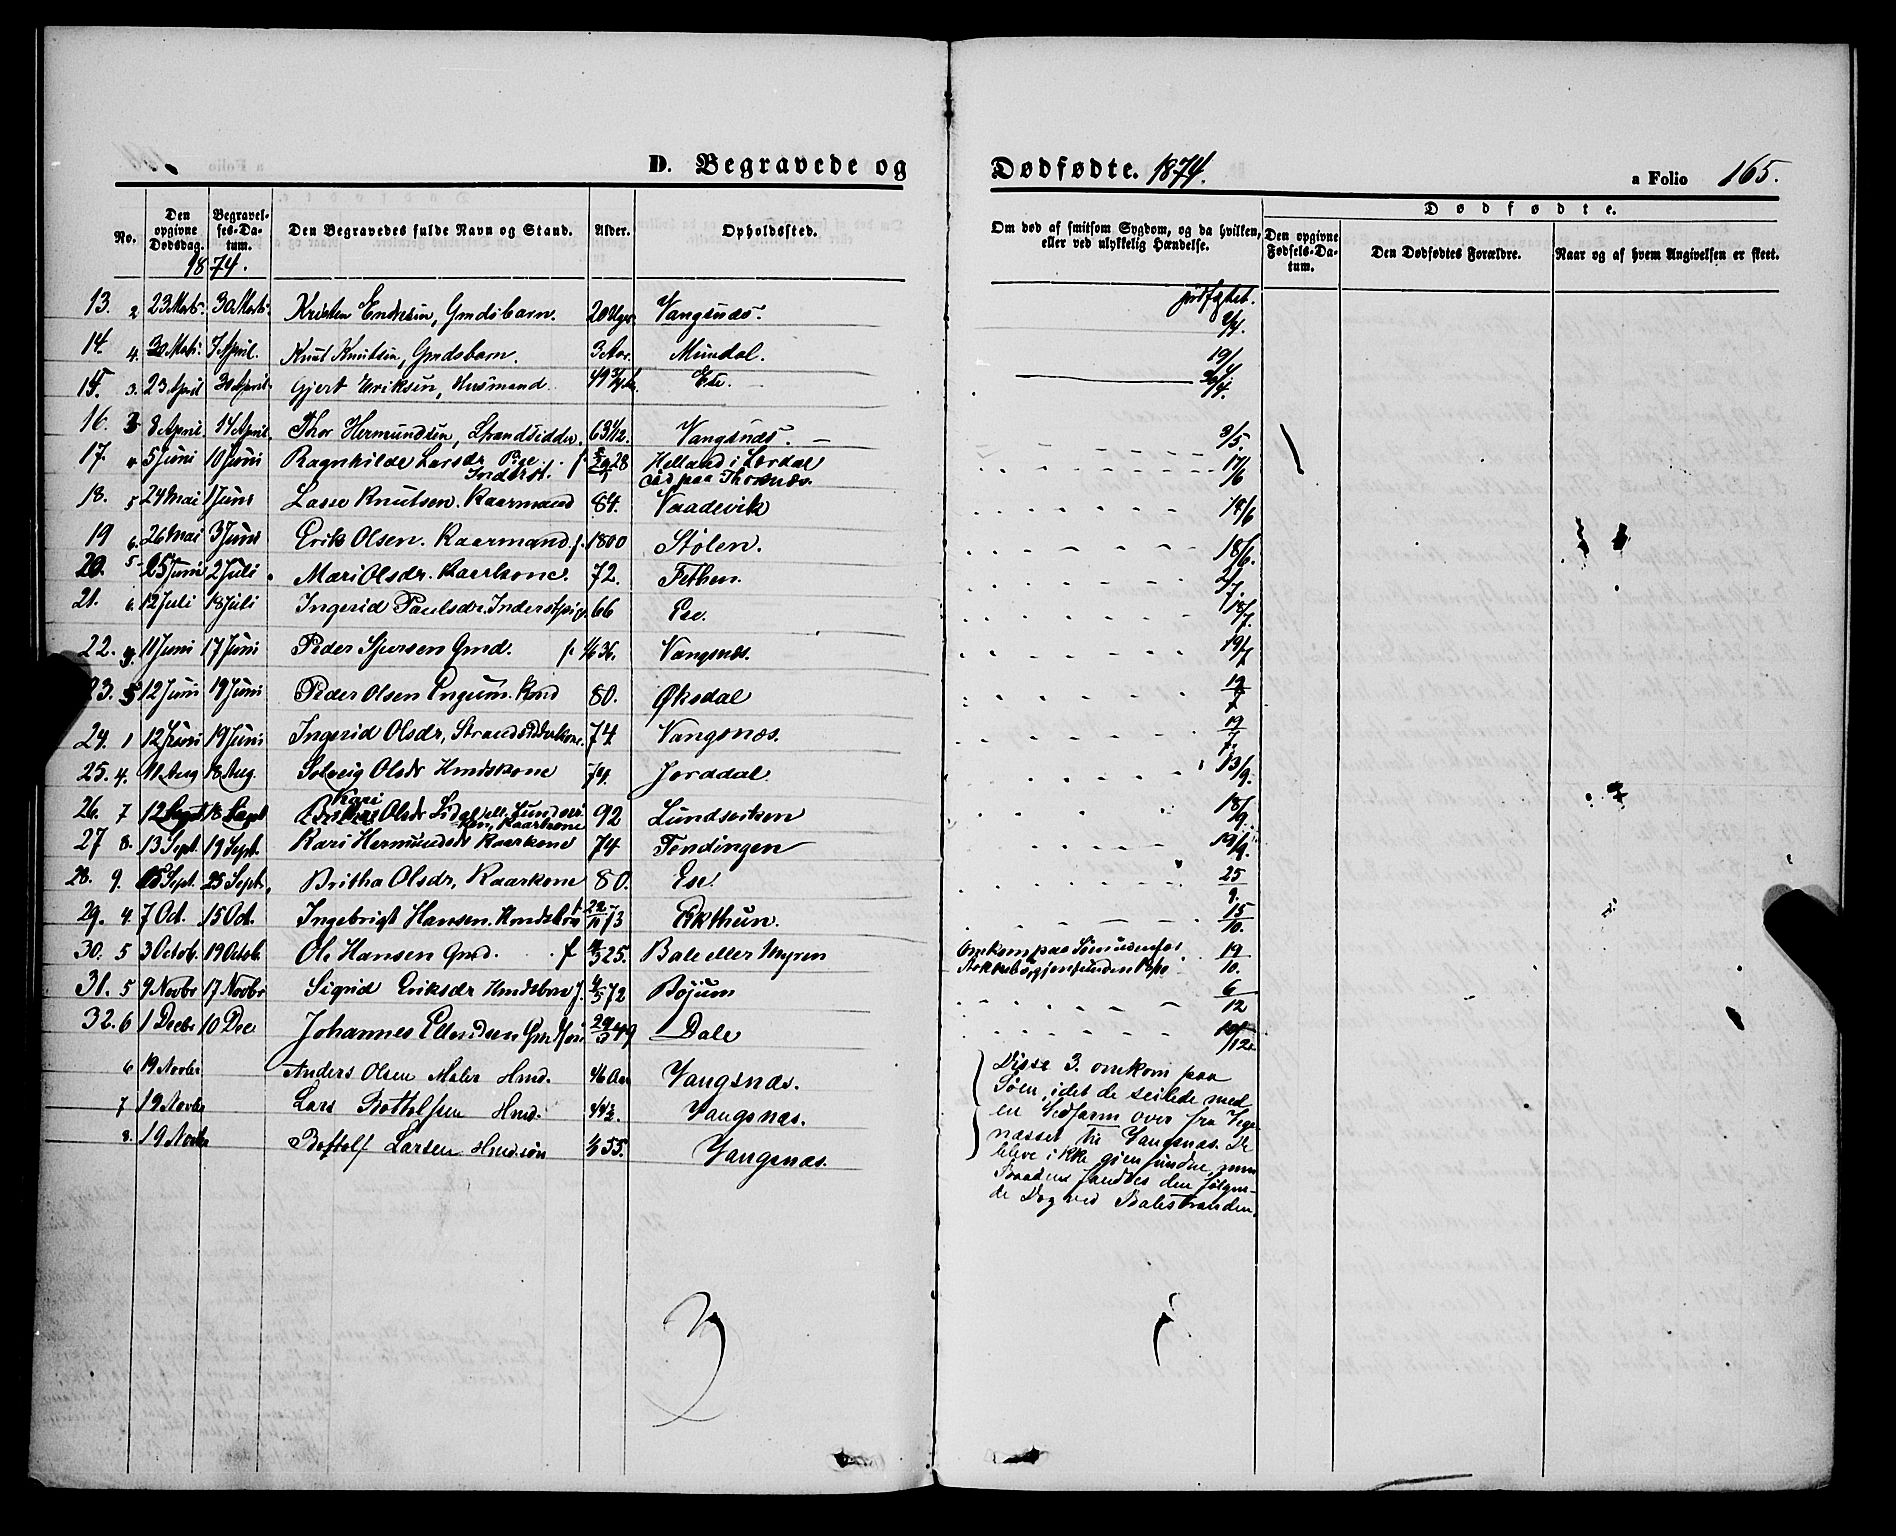 D. Begravede og Dødfødte. 1874. a Folio 165.
No. Den opgivne Dødsdag. Begravelses-Datum. Den Begravedes fulde Navn og Stand. Alder. Opholdssted. Om død af smitsom Sygdom, og da hvilken, eller ved ulykkelig Hændelse.
Dødfødte.
Den opgivne Fødsels-Datum. Den Dødfødtes Forældre. Naar og af hvem Angivelsen er skeet.
1874.
13. 2 23 Marts 30 Marts Kristen Endresen, Gmdsbarn. 20 Uger Vangsnæs. jordfæstet. 2/4.
14. 4. 30 Marts 7 April. Knut Knutsen, Gmdsbarn. 3 Aar. Mundal. 19/4
15. 3. 23 April 30 April Gjert Eriksen, Husmand 49 Ese. 26/4.
16. 3 8 April. 14 April. Thor Hermundsen, Strandsidder. 63 1/12. Vangsnæs. 3/5.
17. 5 Juni 10 Juni Ragnhilde Larsdr. Pige f. 28 Helland i Lerdal 17/6
Inderst. død paa Thorsnæs.
18. 5 24 Mai 1 Juni Lasse Knutsen. Kaarmand 84. Vaadevik 18/6
19 6. 26 Mai 3 Juni Erik Olsen. Kaarmand f. 1800 Stølen. 18/6.
20. 5 25 Juni 2 Juli Mari Olsdr. Kaarkone. 72. Fethen. 2/7.
21. 6. 12 Juli 18 Juli Ingerid Paulsdr. Inderstpige. 66 Ese. 18/7.
22. 11 Juni 17 Juni Peder Sjursen Gmd. f. 36. Vangsnæs. 19/7
23. 5 12 Juni 19 Juni Peder Olsen Engum. Kmd 80. Øksdal 19/7
24. 1 12 Juni 19 Juni Ingerid Olsdr, Strandsidderkone. 74 Vangsnæs. 19/7.
25. 4. 11 Aug 18 Aug. Solveig Olsdr Hmdskone 74. Jorddal 13/9.
Kari
26. 7 12 Sept 18 Sept Olsdr eller Lundsei- 92 Lundseiken 18/9.
ken, Kaarkone
27 8. 13 Sept. 19 Sept. Kari Hermundsdr Kaarkone 74 Tendingen 19/9.
28. 9. Sept. 25 Sept. Britha Olsdr, Kaarkone 80. Ese. 25/9.
29. 4. 7 Oct. 15 Oct. Ingebrigt Hansen. Hmdsbarn 22/11 73 Fikthun. 15/10.
30. 5 3 Octob. 19 Octob. Ole Hansen Gmd. f 25. Bale eller Myren Omkom paa Søen 19/10.
31. 5 9 Novbr 17 Novbr Sigrid Eriksdr Hmdsbarn f. 72 Bøjum 6/12
32. 6 1 Decbr 10 Dec Johannes Ellendsen 49 Dale /12.
6 19 Novbr Anders Olsen Maler Hmd. 46 Aar Vangsnæs.
7 19 Novbr Lars Bottolfsen Hmd. 44 1/2. Vangsnæs.
8. 19 Novbr Bottolf Larsen Hmdssøn 55. Vangsnæs.
Disse 3. omkom paa
Søen, idet de seilede med
en over fra
næsset til Vangsnæs. De
bleve ikke gjenfundne, men
Baaden fandtes den følgen-
de Dag ved Balestranden.